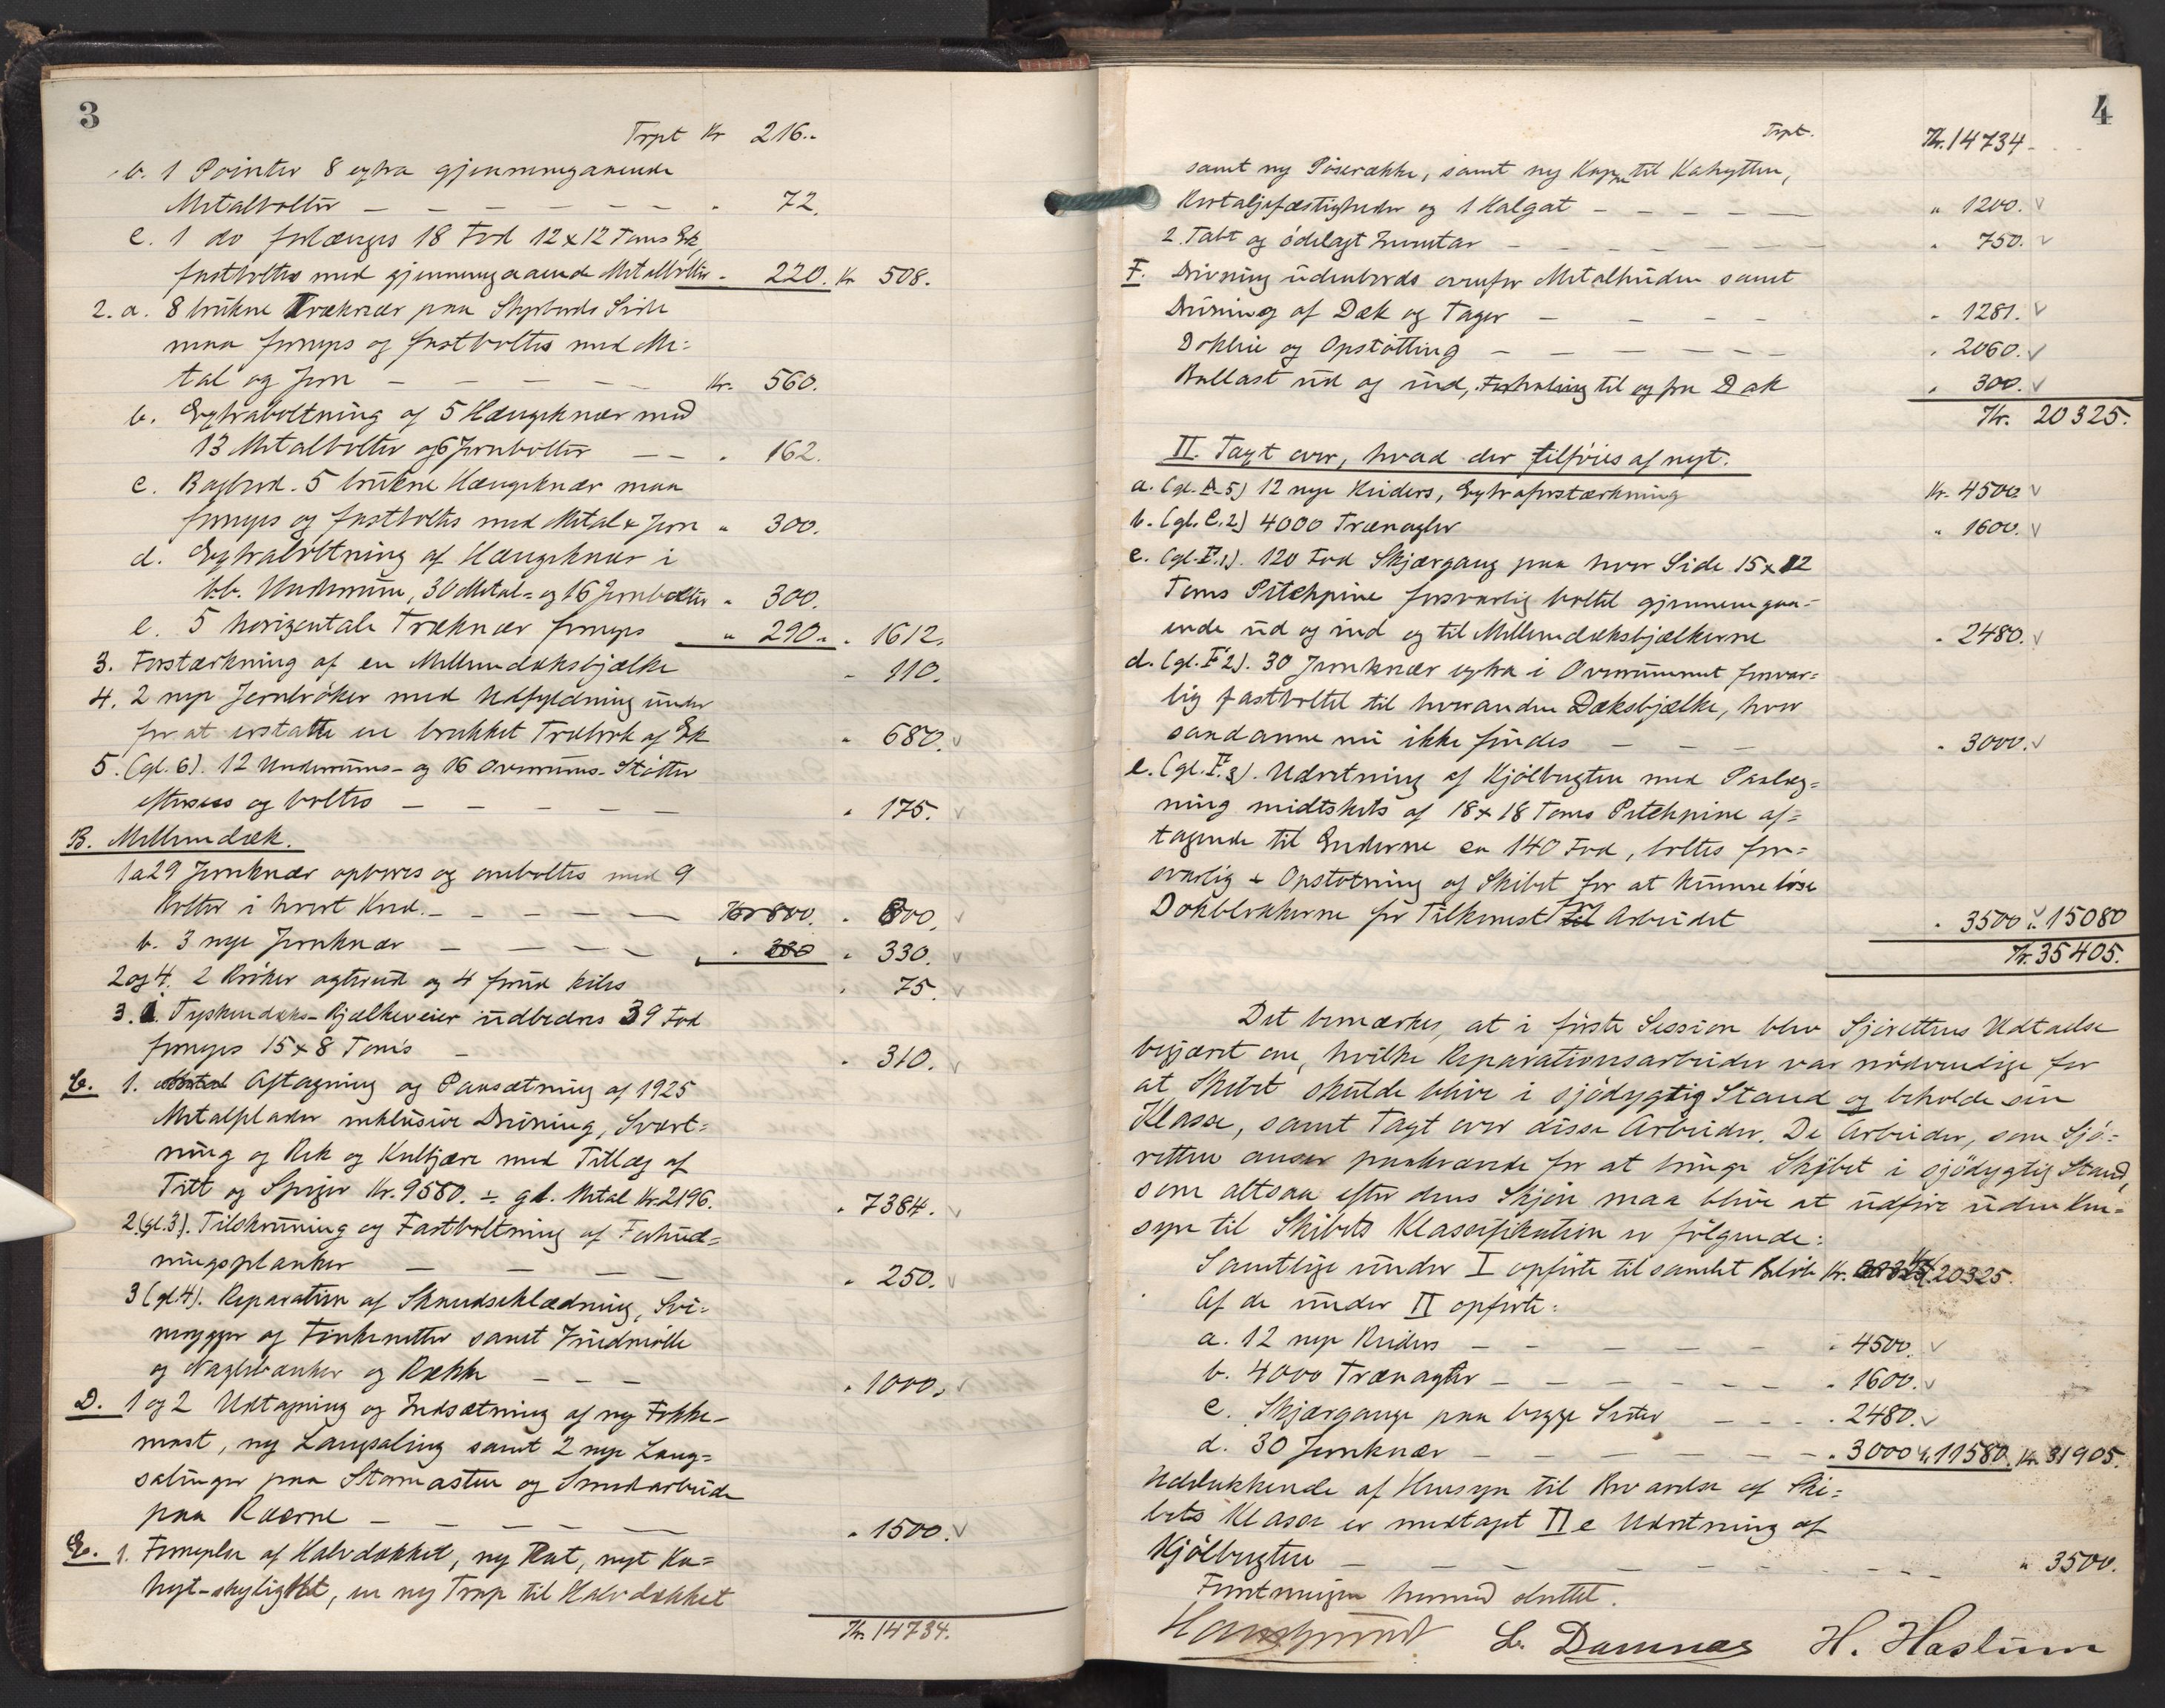 3
Trpt Kr 216.-
b. 1 Pointer 8 extra gjennemgaaende
Metalbolter - - - - - - - 72.
c. 1 do forlænges 18 Fod 12x12 Toms Ek,
fastboltes med gjennemgaaende Metalbolter - 220. Kr 508.
2. a. 8 brukne Træknær paa Styrbords Side
maa fornyes og fastboltes med Me=
tal og Jern - - - - - Kr. 560.
b. Extraboltning af 5 Hængeknær med
13 Metalbolter og 6 Jernbolter - - " 162.
c. Bagbord. 5 brukne Hængeknær maa
fornyes og fastboltes med Metal & Jern " 300.
d. Extraboltning af Hængeknær i
b.b. Underrum, 30 Metal= og 16 Jernbolter " 300.
e. 5 horizontale Træknær fornyes " 290. " 1612.
3. Forstærkning af en Mellemdæksbjælke " 110.
4. 2 nye Jernbröker med Udfyldning under
for at erstatte en brukket Træbrok af Ek " 680.
5. (gl. 6). 12 Underrums- og 16 Overrums-Støtter
eftersees og boltes - - - - - " 175.
B. Mellemdæk.
1a 29 Jernknær opbores og omboltes med 9
Bolter i hvert Knæ. - - - - - Kr 800. " 800.
b. 3 nye Jernknær - - - - " 330 " 330.
2 og 4. 2 Bröker agterud og 4 forud kiles " 75.
3. Tyskendæks-Bjælkeveier udbedres 39 Fod
fornyes 15x8 Toms - " 310.
C. 1. Metal Aftagning og Paasætning af 1925
Metalplader inklusive Drivning, Svært=
ning og Bek og Kultjære med Tillæg af
Filt og Spiger Kr. 9580. ÷ gl. Metal Kr. 2196. " 7384.
2 (gl. 3). Tilskruning og Fastboltning af Forhud=
ningsplanker - - - - " 250.
3 (gl. 4). Reparation af Skandseklædning, Svi=
nerygger og Finkenetter samt
og Naglebænker og Rækk - - - " 1000.
D. 1 og 2 Udtagning og Indsætning af ny Fokke-
mast, ny Langsaling samt 2 nye Lang=
salinger paa Stormasten og Smedarbeide
paa Ræerne - - - - - " 1500.
E. 1. Fornyelse af Halvdækket, ny Rat, nyt Ka=
hyt-skylight, en ny Trap til Halvdækket
Kr. 14734.
4
Trpt. Kr. 14734
samt ny Poserække, samt ny Kappe til Kahytten,
Røstaljefæstigheder og 1 Halgat - - - - - " 1200.
2. Tabt og ödelagt Inventar - - - - - - " 750.
F. Drivning udenbords ovenfor Metalhuden samt
Drivning af Dæk og Tager - - - - " 1281.
Dokleie og Opstötting - - - - - - " 2060.
Ballast ud og ind, Forhaling til og fra Dok " 300.
Kr. 20325.
II. Taxt over, hvad der tilföies af nyt.
a. (gl. A 5) 12 nye Reiders, Extraforstærkning Kr. 4500
b. (gl. C. 2) 4000 Trænagler " 1600.
c. (gl. F. 1). 120 Fod Skjærgang paa hver Side 15x12
Toms Pitchpine forsvarlig boltet gjennemgaa-
ende ud og ind og til Mellemdæksbjælkerne " 2480.
d. (gl. F 2). 30 Jernknær extra i Overrummet forsvar=
lig fastboltet til hverandre Dæksbjælke, hvor
saadanne nu ikke findes - - - " 3000.
e. (gl. F. 3). Udretning af Kjölbugten med Paalæg=
ning midtskibs af 18x18 Toms Pitchpine af=
tagende til Enderne ca 140 Fod, boltes for=
svarlig & Opstötning af Skibet for at kunne löse
Dokblokkerne for Tilkomst for til Arbeidet " 3500 " 15080
Kr. 35405.
Det bemærkes, at i förste Session blev Sjörettens Udtalelse
begjæret om, hvilke Reparationsarbeider var nödvendige for
at Skibet skulde blive i sjödygtig Stand og beholde sin
Klasse, samt Taxt over disse Arbeider. De Arbeider, som Sjö=
retten anser paakrævende for at bringe Skibet i sjödygtig Stand,
som altsaa efter dens Skjön maa blive at udföre uden Hen=
syn til Skibets Klassifikation er fölgende:
Samtlige under I opförte til samlet Belöb Kr. 20325.
Af de under II opförte:
a. 12 nye Reiders - - - - - - " 4500.
b. 4000 Trænagler - - - - - - " 1600.
c. Skjærgange paa begge Sider - - - " 2480.
d. 30 Jernknær - - - - - - " 3000 Kr. 11580. Kr. 31905.
Udelukkende af Hensyn til Bevarelse af Ski=
bets Klasse er medtaget II e Udretning af
Kjölbugten - - - - - - - - - " 3500.
Forretningen hermed sluttet.
L. Damnas H. Haslum